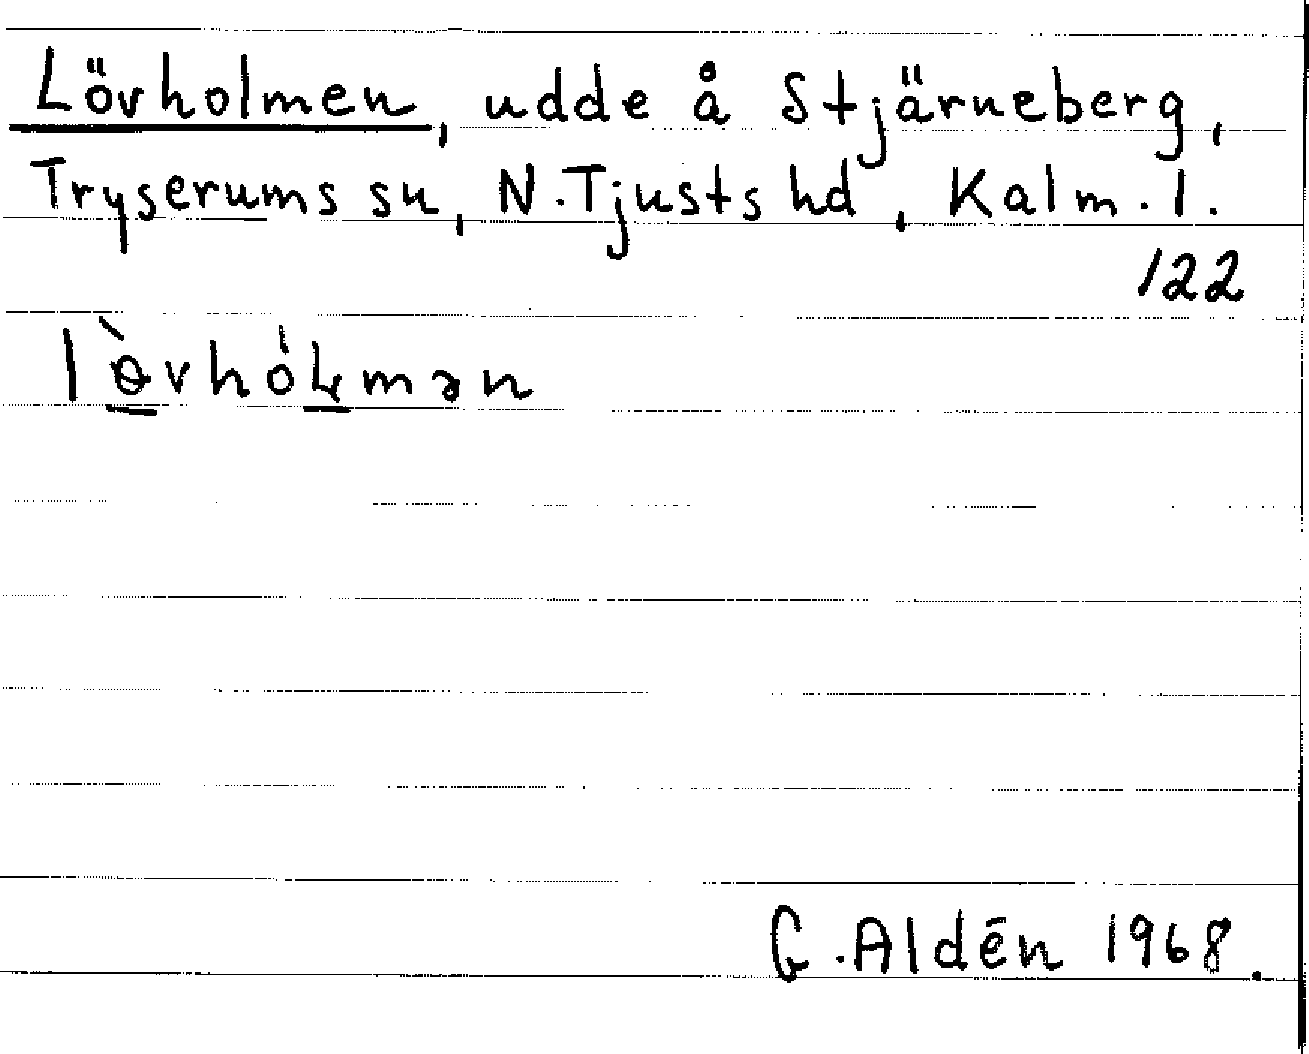 Lövholmen, udde å Stjärneberg,
Tryserums sn, N. Tjusts hd, Kalm. l.
122
G. Aldén 1968.